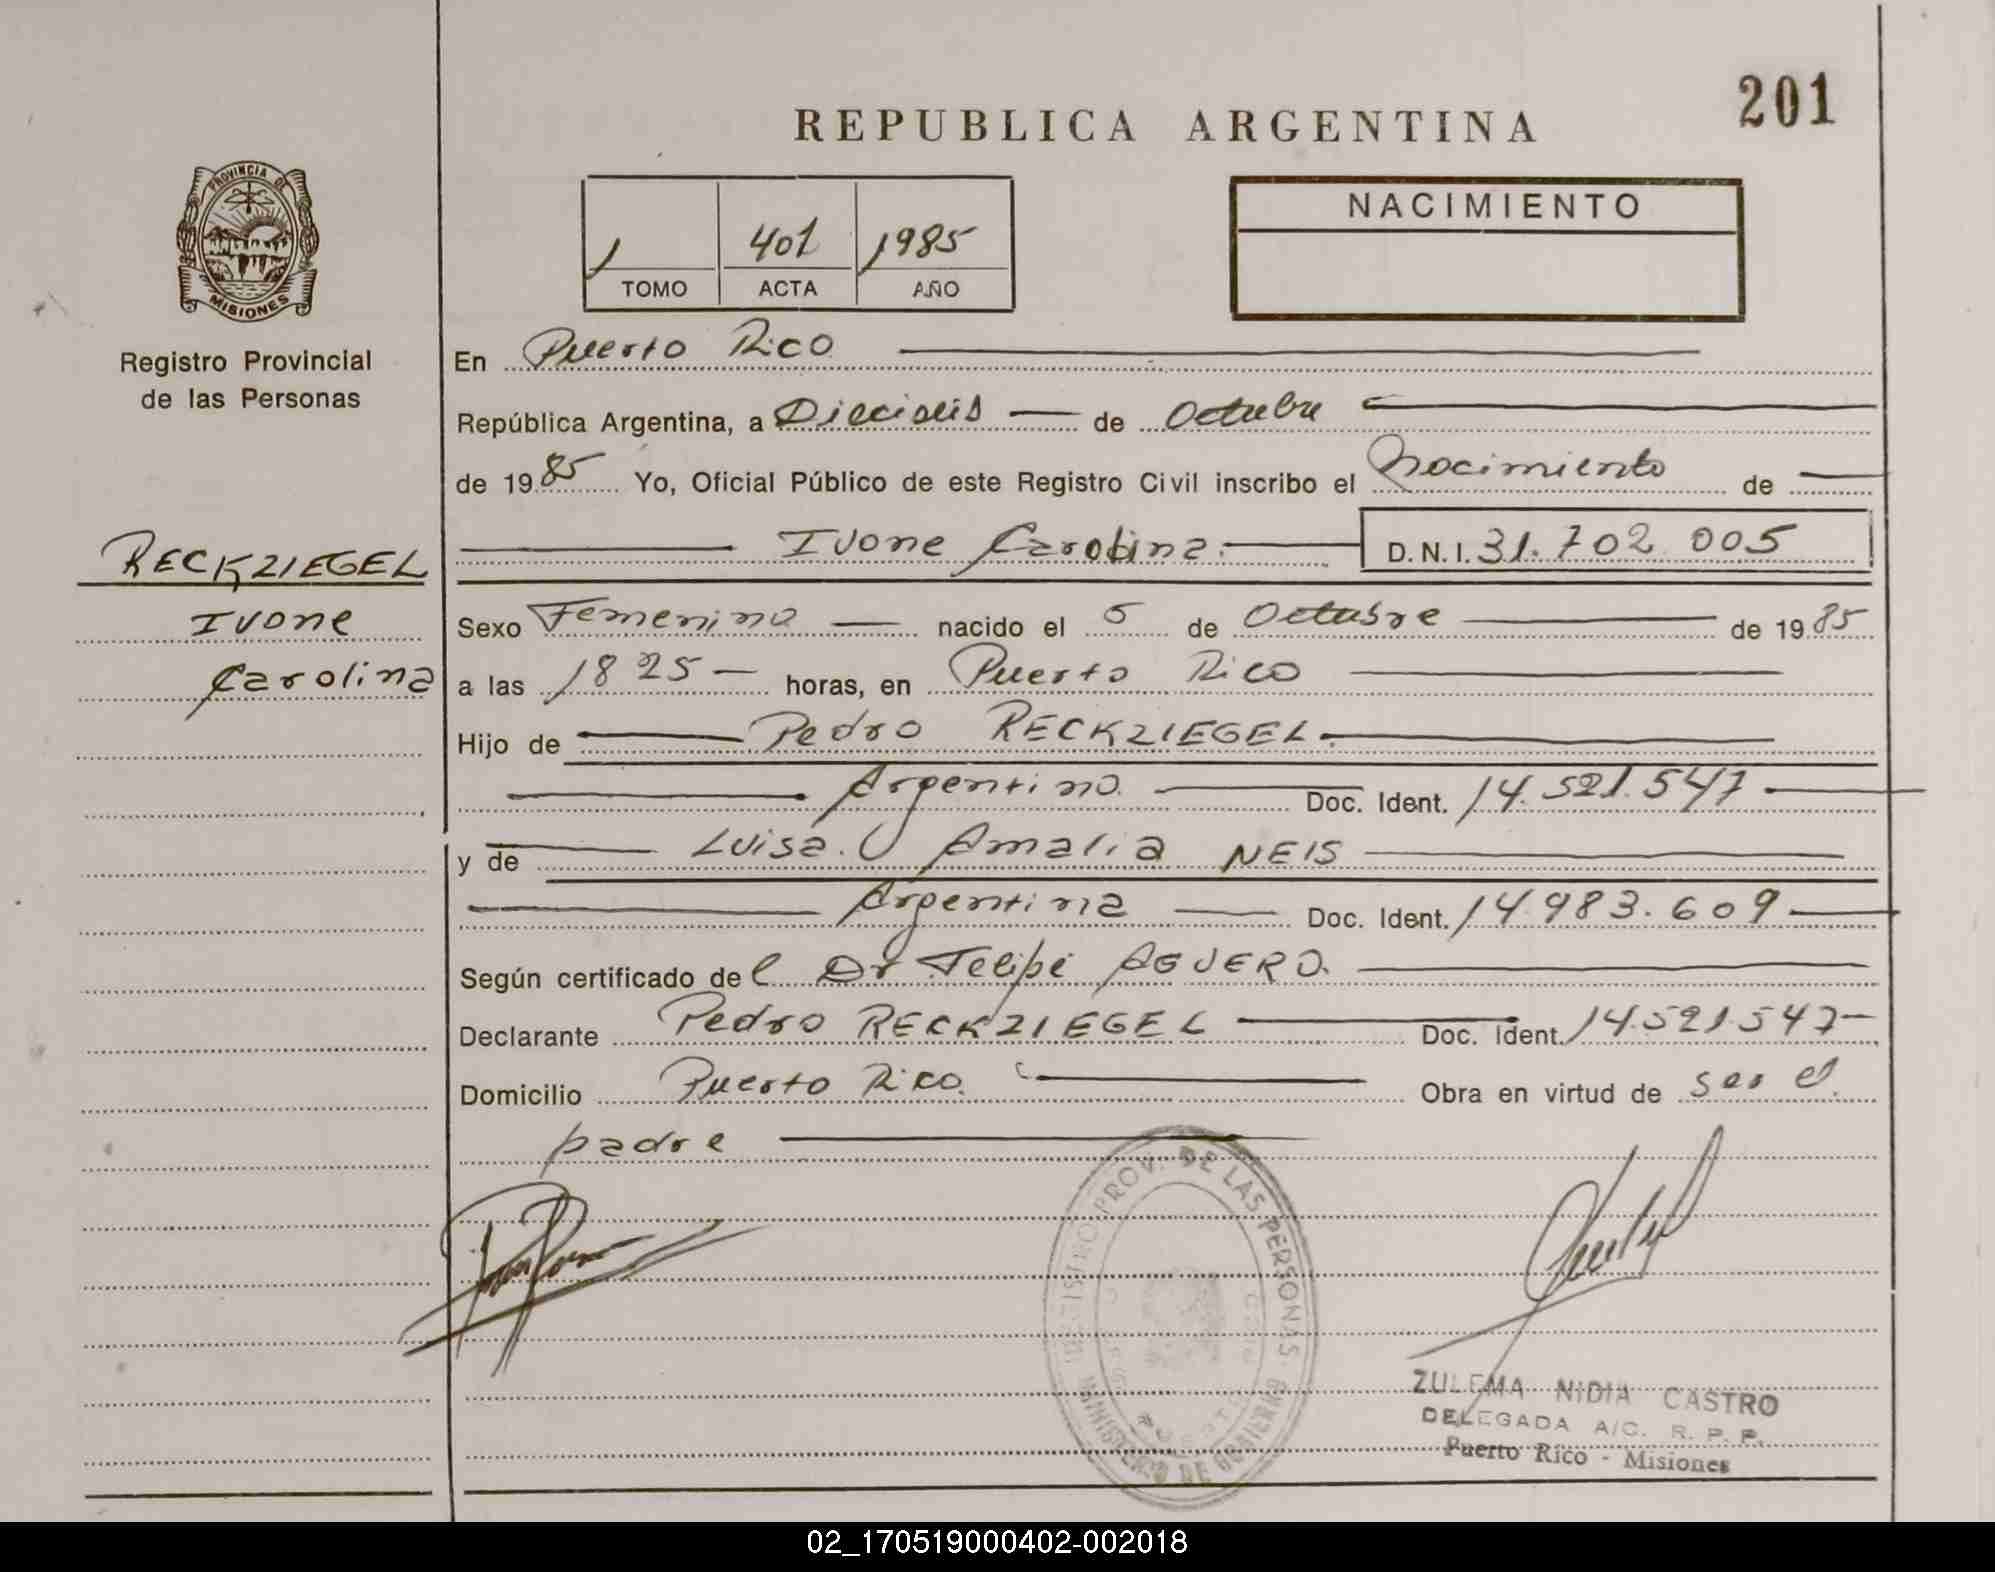 201
REPUBLICA ARGENTINA
PROVINCIA DE
MISIONES
Registro Provincial
de las Personas
1 401 1985
TOMO ACTA AÑO
NACIMIENTO
En Puerto Rico
República Argentina, a Dieciseis de Octubre
de 1985 Yo, Oficial Público de este Registro Civil inscribo el Nacimiento de
Ivone Carolina. D.N.I. 31.702.005
RECKZIEGEL
Ivone
Carolina
Sexo Femenino nacido el 5 de Octubre de 1985
a las 18 25 horas, en Puerto Rico
Hijo de Pedro RECKZIEGEL.
Argentino. Doc. Ident. 14.521.547
y de Luisa Amalia NEIS
Argentina Doc. Ident. 14.983.609
Según certificado del Dr Felipe AGUERO.
Declarante Pedro RECKZIEGEL Doc. Ident. 14.521.547
Domicilio Puerto Rico. Obra en virtud de ser el
padre
REGISTRO PROV. DE LAS PERSONAS
MINISTERIO DE GOBIERNO
ZULEMA NIDIA CASTRO
DELEGADA A/C. R. P. P.
Puerto Rico - Misiones
02_170519000402-002018